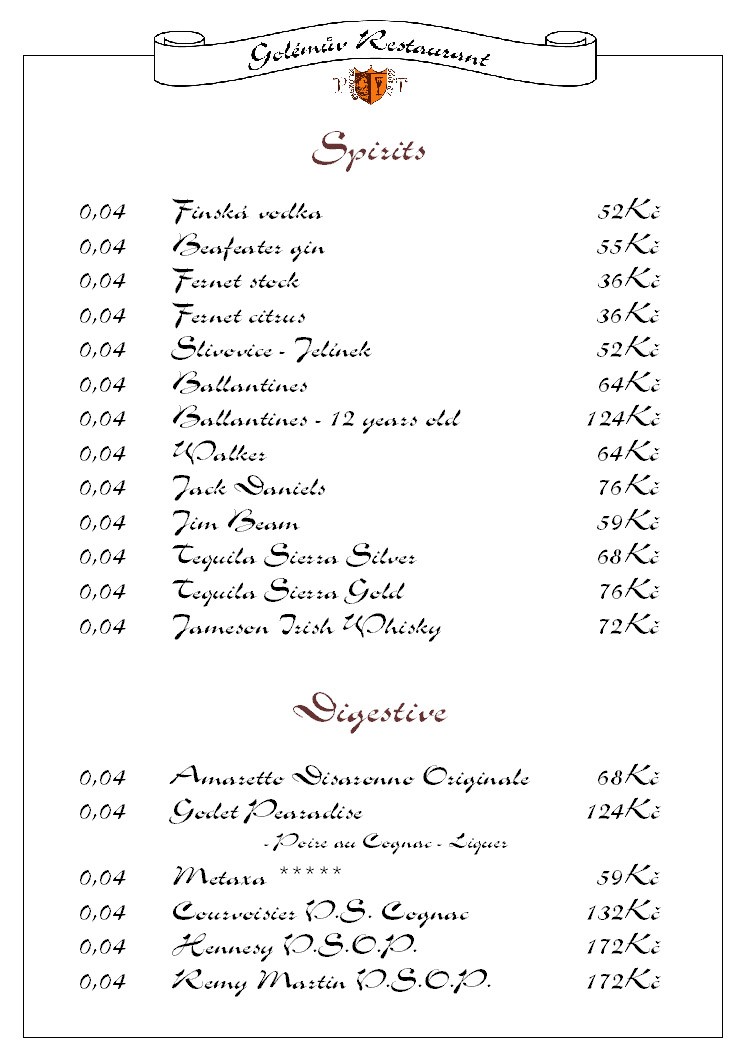 Golémův Restaurant
P T
Spirits
0,04 Finská vodka 52Kč
0,04 Beafeater gin 55Kč
0,04 Fernet stock 36Kč
0,04 Fernet citrus 36Kč
0,04 Slivovice - Jelínek 52Kč
0,04 Ballantines 64Kč
0,04 Ballantines - 12 years old 124Kč
0,04 Walker 64Kč
0,04 Jack Daniels 76Kč
0,04 Jim Beam 59Kč
0,04 Tequila Sierra Silver 68Kč
0,04 Tequila Sierra Gold 76Kč
0,04 Jameson Irish Whisky 72Kč
Digestive
0,04 Amaretto Disaronno Originale 68Kč
0,04 Godet Pearadise 124Kč
- Poire au Cognac - Liquer
0,04 Metaxa ***** 59Kč
0,04 Courvoisier V.S. Cognac 132Kč
0,04 Hennesy V.S.O.P. 172Kč
0,04 Remy Martin V.S.O.P. 172Kč